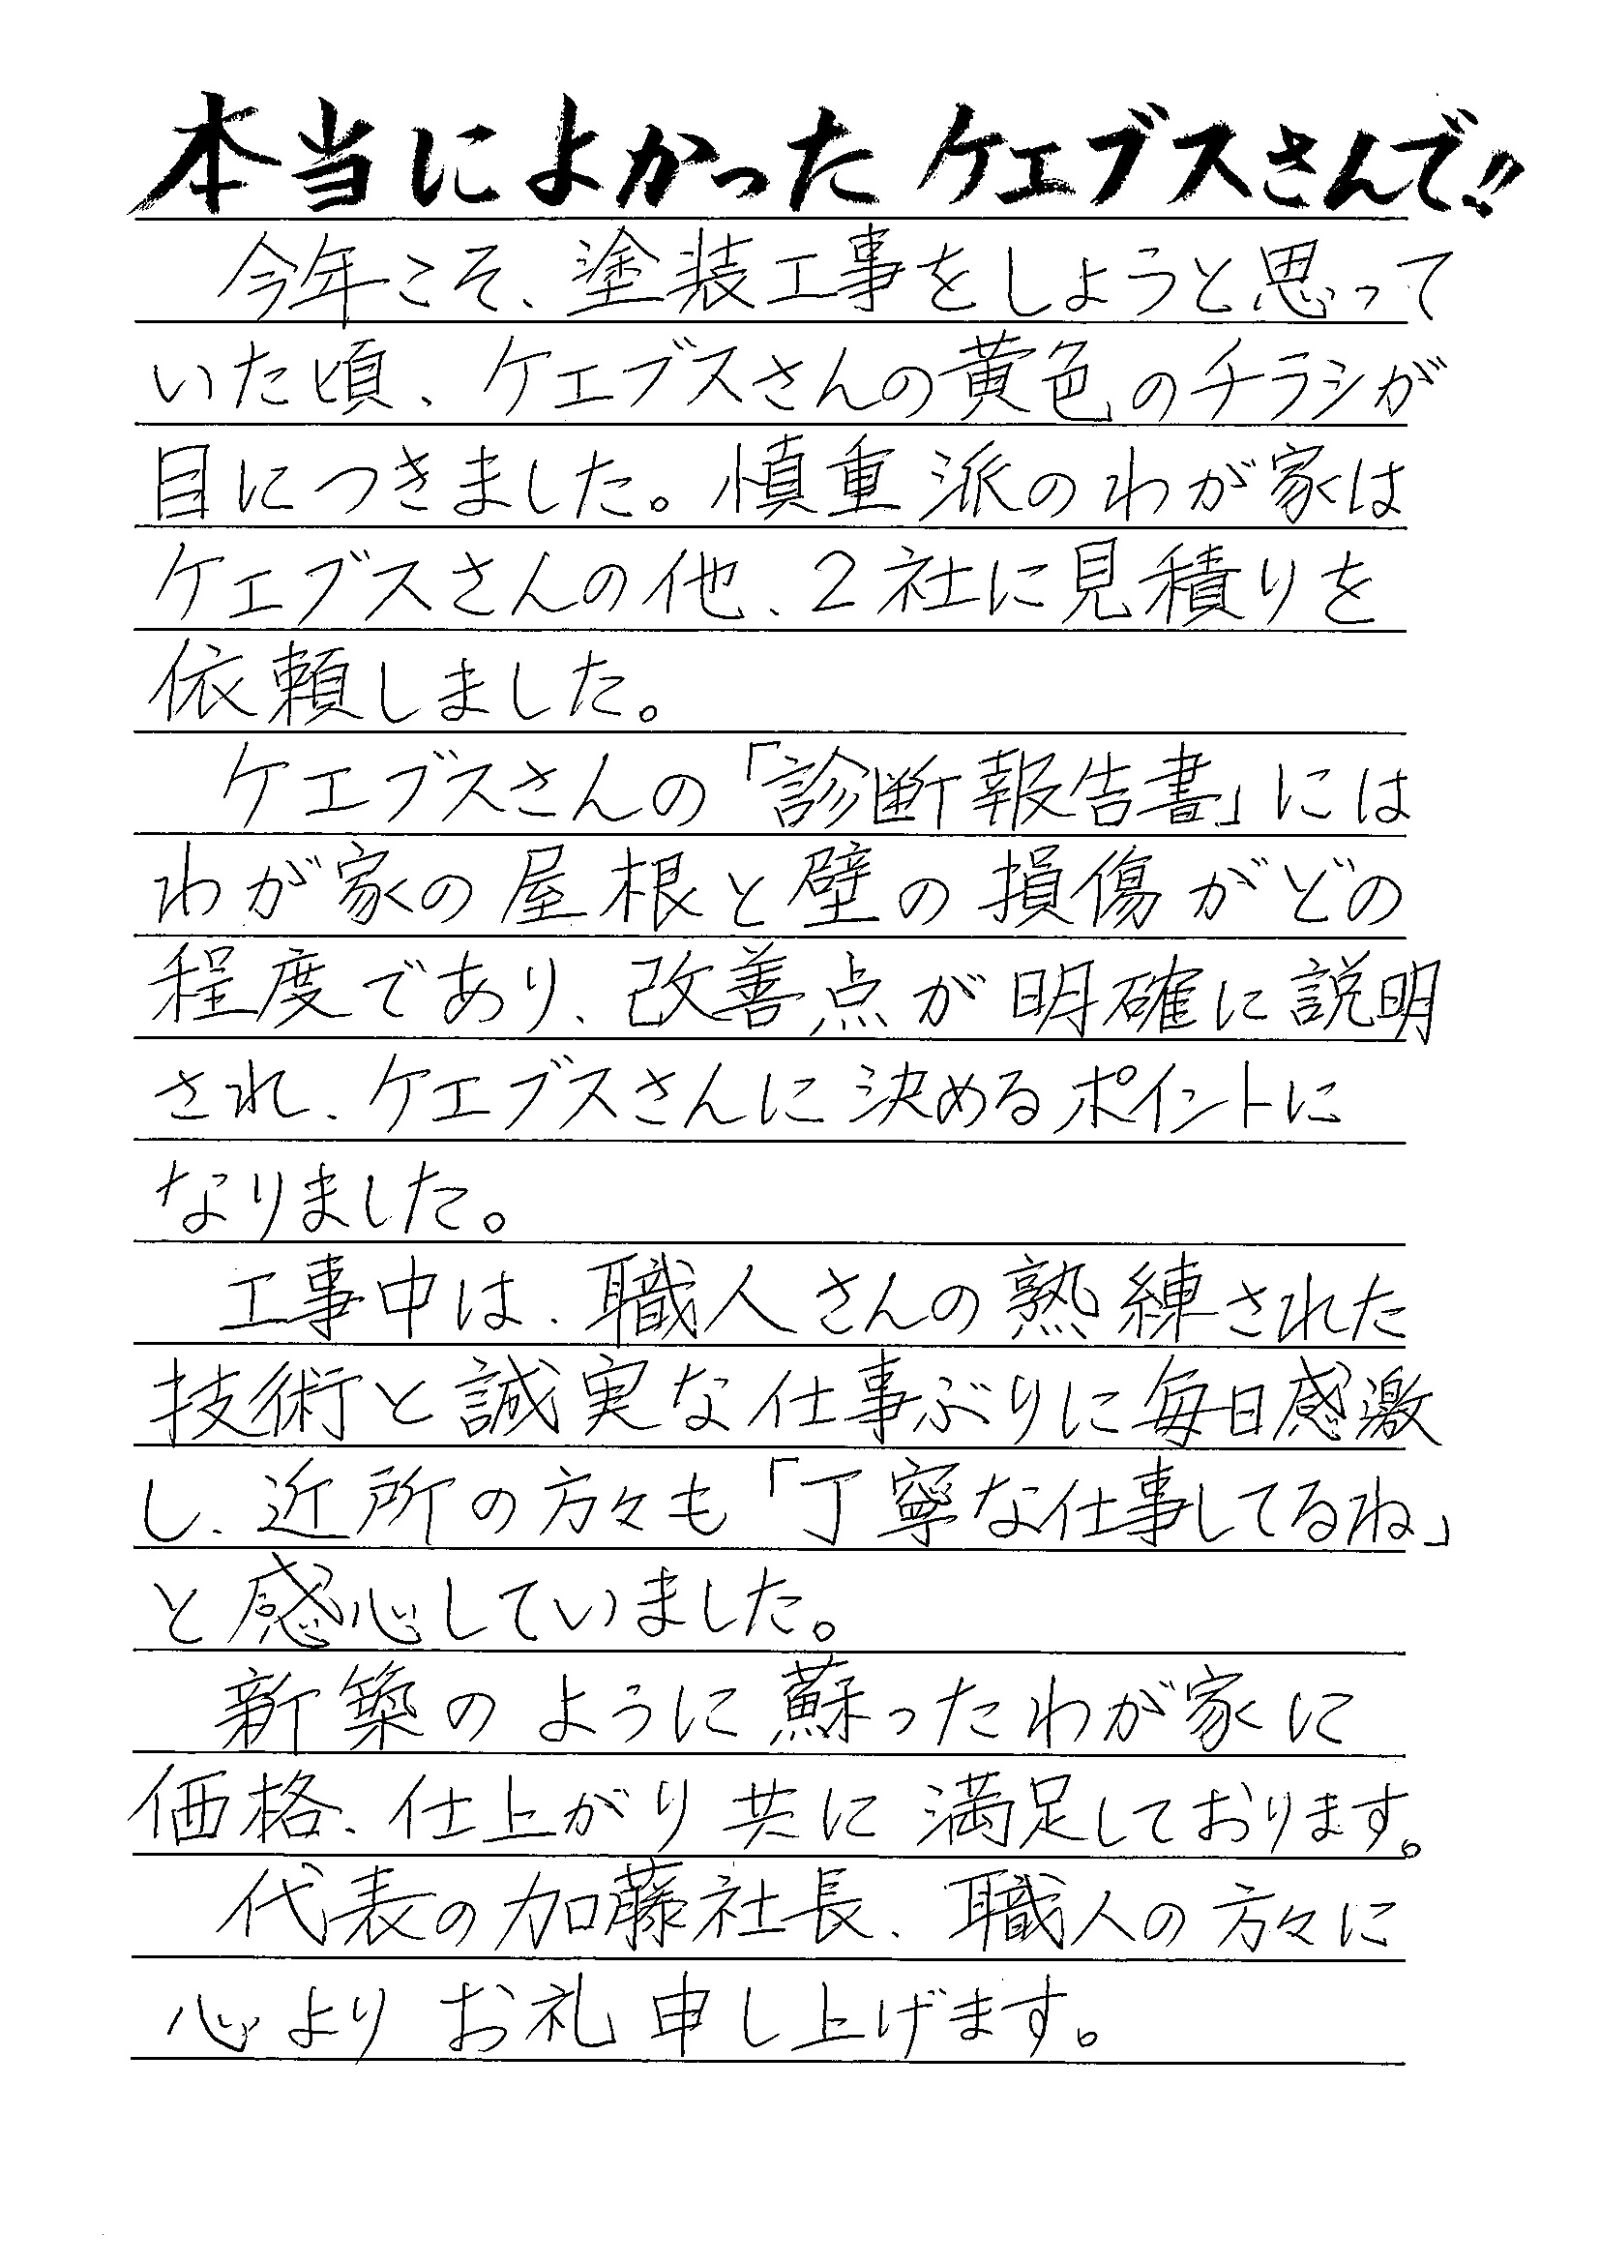 本当によかった ケエブスさんで!!
今年こそ、塗装工事をしようと思って
いた頃、ケエブスさんの黄色のチラシが
目につきました。慎重派のわが家は
ケエブスさんの他、2社に見積りを
依頼しました。
ケエブスさんの「診断報告書」には
わが家の屋根と壁の損傷がどの
程度であり、改善点が明確に説明
され、ケエブスさんに決めるポイントに
なりました。
工事中は、職人さんの熟練された
技術と誠実な仕事ぶりに毎日感激
し、近所の方々も「丁寧な仕事してるね」
と感心していました。
新築のように蘇ったわが家に
価格、仕上がり共に満足しております。
代表の加藤社長、職人の方々に
心よりお礼申し上げます。